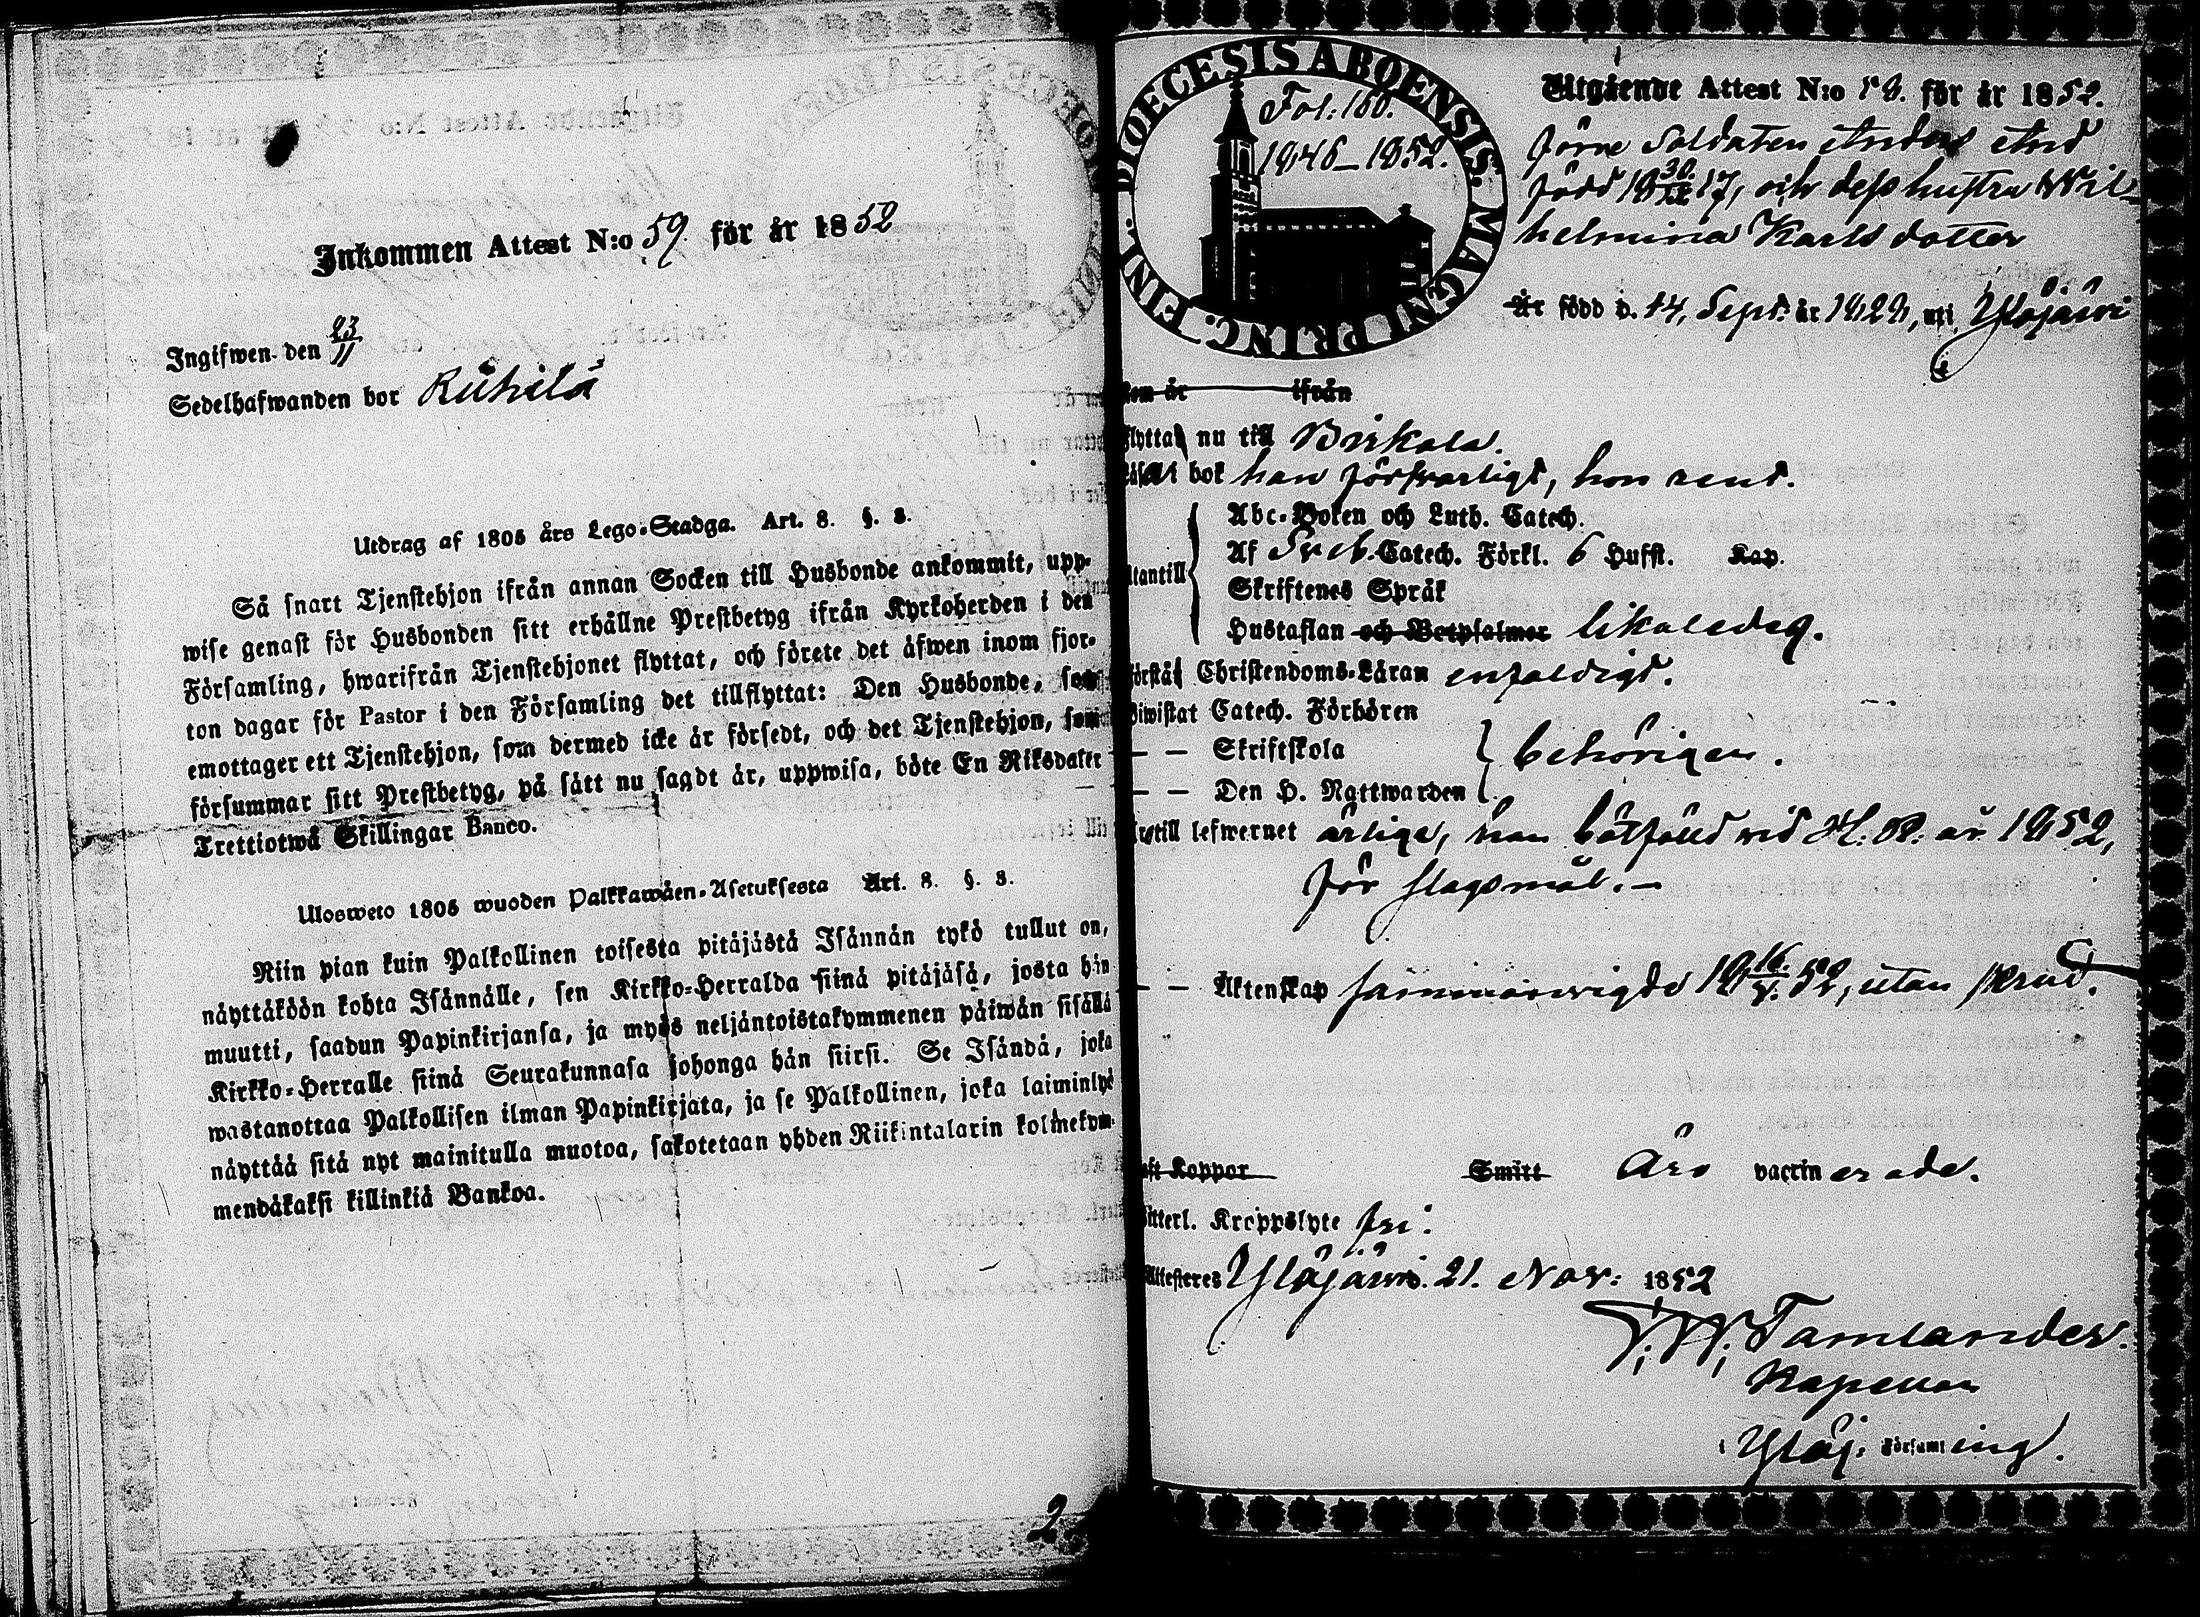 Inkommen Attest N:o 59. för år 1852
Ingifwen den 23/11
Sedelhafwanden bor Riihilä
Utdrag af 1805 års Lego-Stadga. Art. 8. §. 3.
Så snart Tjenstehjon ifrån annan Socken till Husbonde ankommit, upp-
wise genast för Husbonden sitt erhållne Prestbetyg ifrån Kyrkoherden i den
Församling, hwarifrån Tjenstehjonet flyttat, och förete det äfwen inom fjor-
ton dagar för Pastor i den Församling det tillflyttat: Den Husbonde, som
emottager ett Tjenstehjon, som dermed icke är försedt, och det Tjenstehjon, som
försummar sitt Prestbetyg, på sätt nu sagdt är, uppwisa, böte En Riksdaler
Trettiotwå Skillingar Banco.
Ulosweto 1805 wuoden Palkkawäen-Asetuksesta Art. 8. §. 3.
Niin pian kuin Palkollinen toisesta pitäjästä Isännän tykö tullut on,
näyttäköön kohta Isännälle, sen Kirkko-Herralda siinä pitäjäsä, josta hän
muutti, saadun Papinkirjansa, ja myös neljäntoistakymmenen päiwän sisällä
Kirkko-Herralle siinä Seurakunnasa johonga hän siirsi. Se Isändä, joka
wastanottaa Palkollisen ilman Papinkirjata, ja se Palkollinen, joka laiminlyö
näyttää sitä nyt mainitulla muotoa, sakotetaan yhden Riikintalarin kolmekym-
mendäkaksi killinkiä Bankoa.
2
DIOECESIS ABOENSIS. MAGNI PRINC. FINL.
Fol: 160.
1846–1852.
Utgående Attest N:o 58. för år 1852.
förre Soldaten Anders And
född 18 30/IX 17, och dess hustru Wil-
helmina Karlsdotter
Är född d. 14, Sept. år 1828, uti Ylöjärvi
Kom år ifrån
flytta nu till Birkala.
Läsa i bok han försvarligt, hon rent.
Utantill
Abc-Boken och Luth. Catech.
Af Sveb. Catech. Förkl. 6 Hufst. Kap.
Skriftenes Språk
Hustaflan och Botpsalmer likaledes.
Förstå Christendoms-Läran enfaldigt.
Biwistat Catech. Förhören
— — Skriftskola behörigen.
— — Den H. Nattwarden
Är till lefwernet ärliga, han bötfälld vid H. R. år 1852,
för slagsmål.–
— — Äktenskap sammanvigde 18 16/V. 52, utan brud.
Haft Koppor Smitt Äro vaccinerade.
Witterl. Kroppslyte fri.
Attesteres Ylöjärvi. 21. Nov: 1852
F. W. Tamlander.
Kapellan
i Ylöj. Församling.